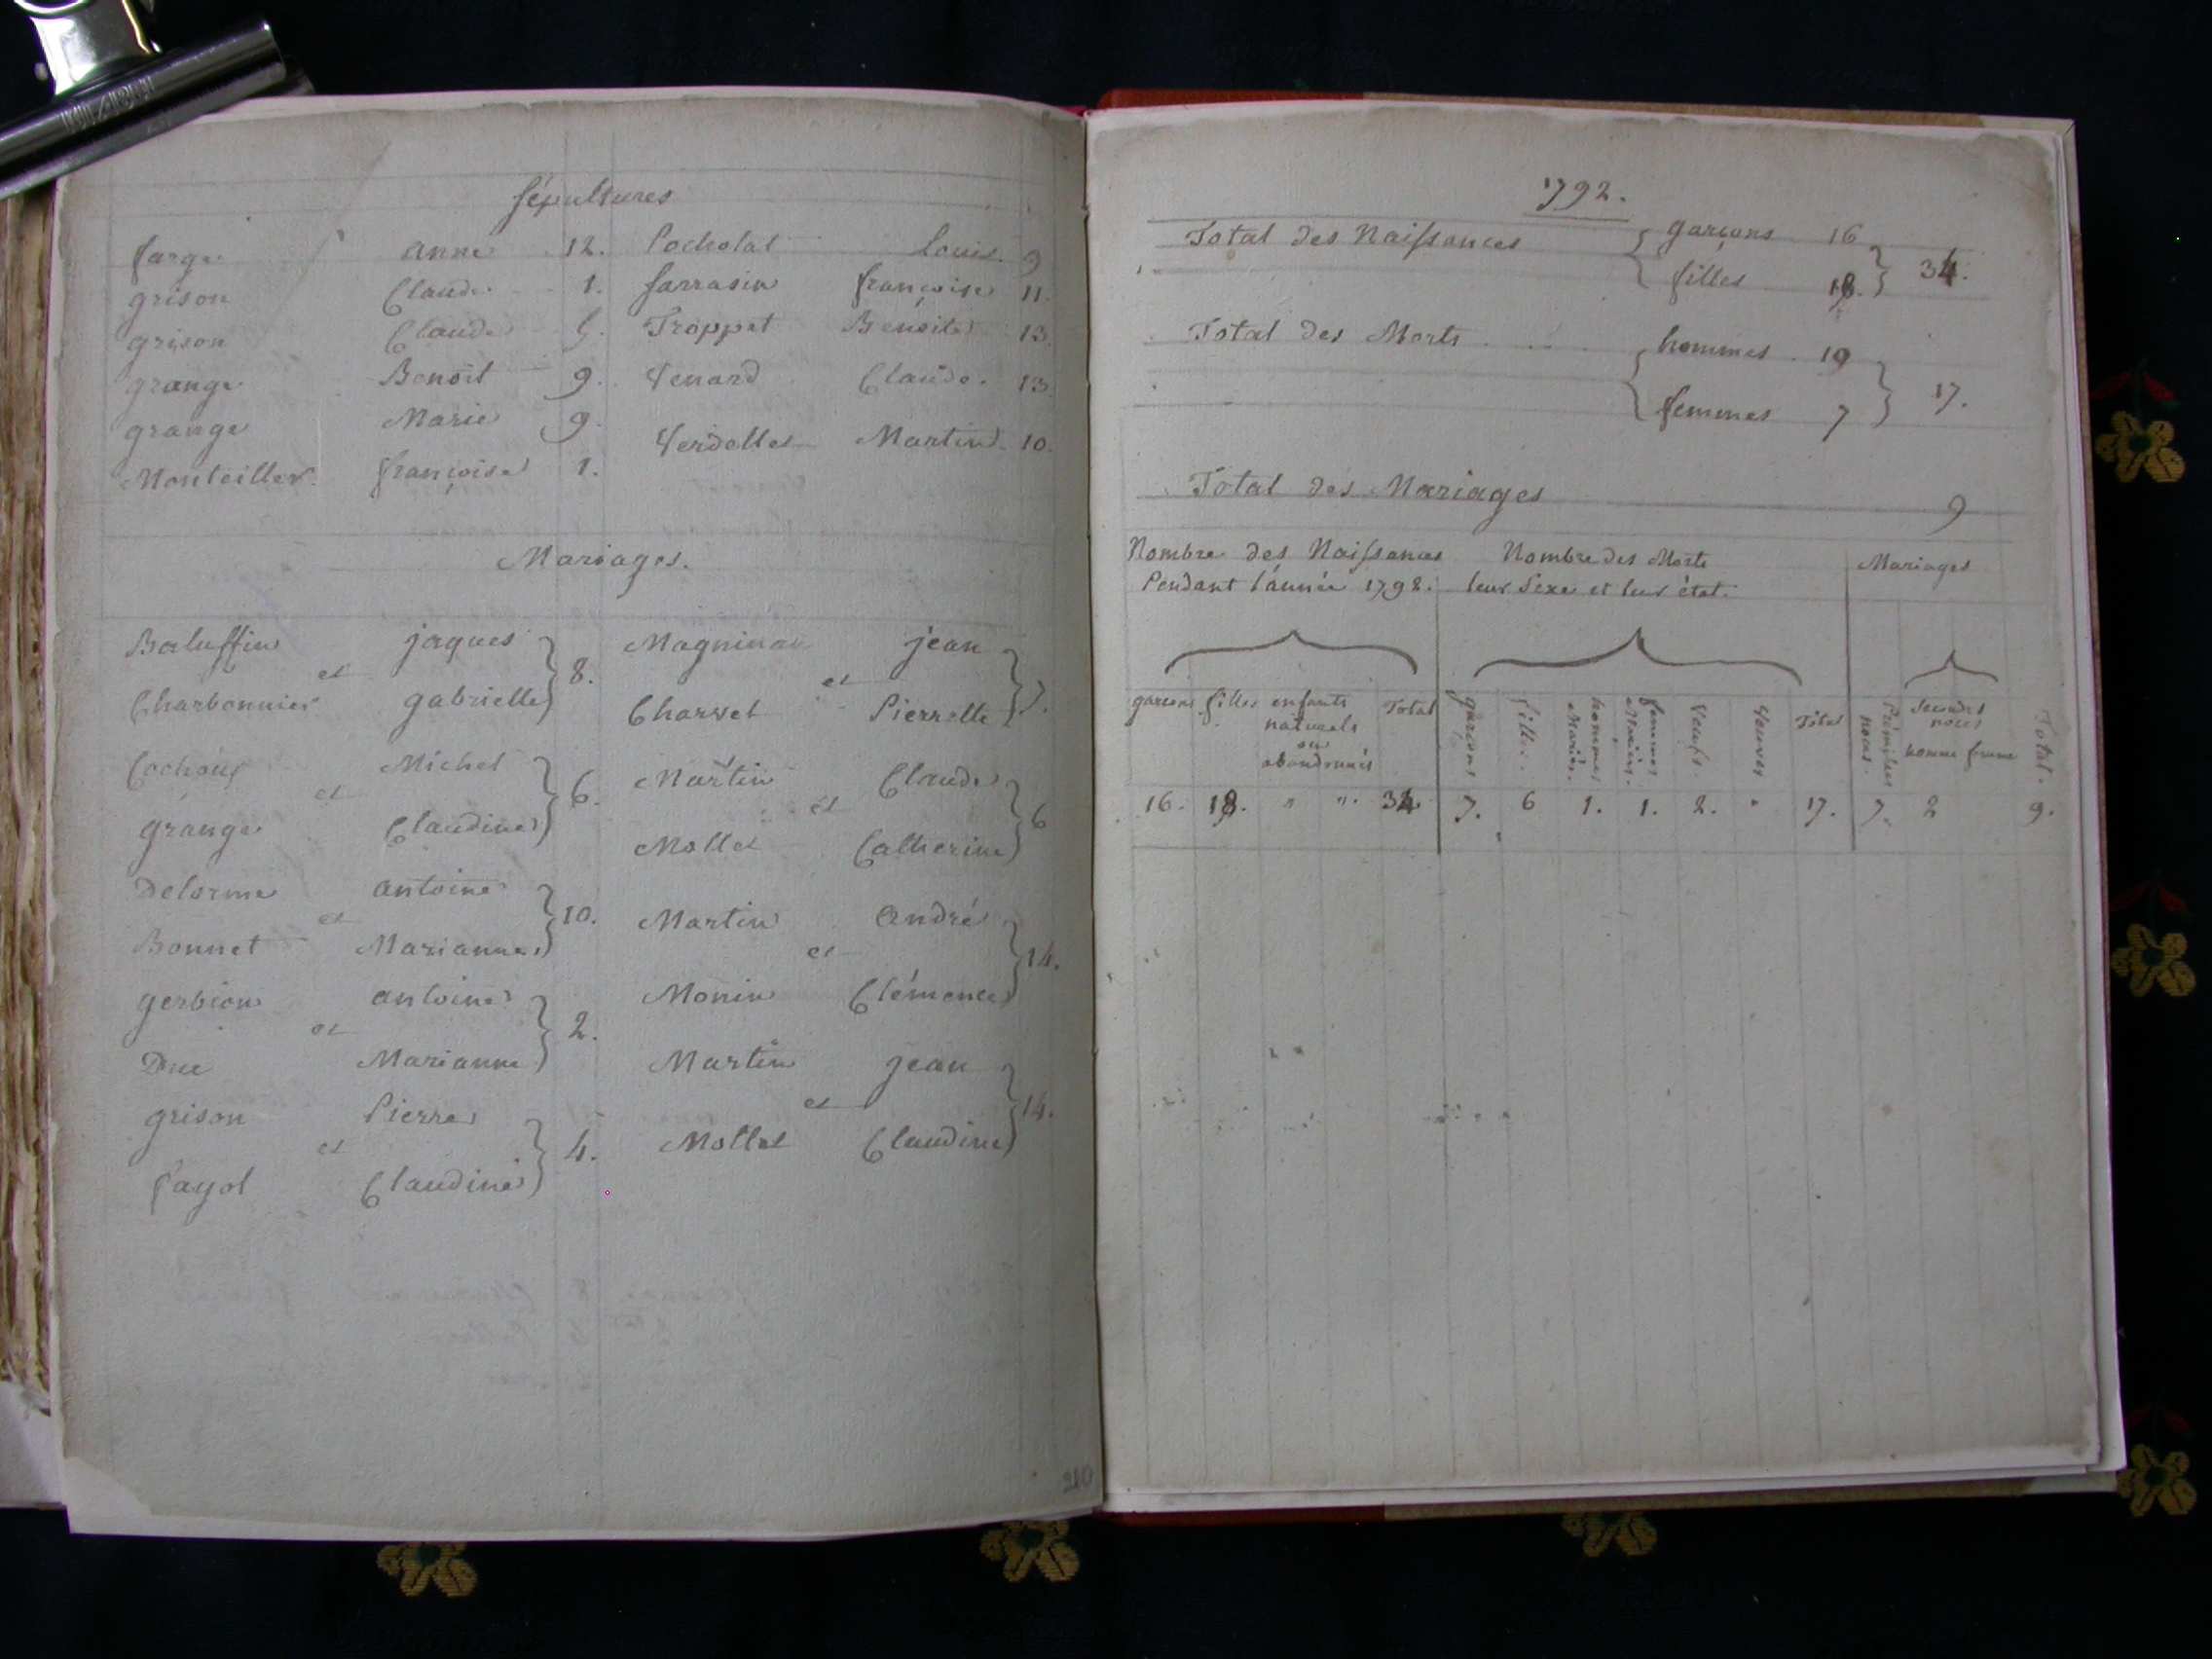 Sépultures
farge anne 12. Pocholat Louis. 9
grison Claude 1. farrasin françoise 11.
grison Claude 5. Troppet Benoite 13.
grange Benoit 9. Venard Claude. 13
grange Marie 9. Verdellet Martin 10.
Monteiller françoise 1.
Mariages.
Baluffin jaques Magninan jean
et 8. et 7.
Charbonnier gabrielle Charvet Pierrette
Cochoux Michel Martin Claude
et 6. et 6
grange Claudine Mollet Catherine
Delorme antoine Martin andré
et 10. et 14.
Bonnet Marianne Monin Clémence
gerbion antoine Martin jean
et 2. et 14.
Duc Marianne Mollet Claudine
grison Pierre
et 4.
fayol Claudine
210
1792.
Total des Naissances garçons 16
filles 18. 34.
Total des Morts hommes 10
femmes 7 17.
Total des Mariages 9
Nombre des Naissances Nombre des Morts Mariages
Pendant l'année 1792. leur Sexe et leur état.
garçons filles enfants naturels ou abandonnés Total garçons filles hommes Mariés. femmes Mariées. Veufs. Veuves Total Premières noces. Secondes noces homme femme Total.
16. 18. " ". 34 7. 6 1. 1. 2. " 17. 7. 2 9.